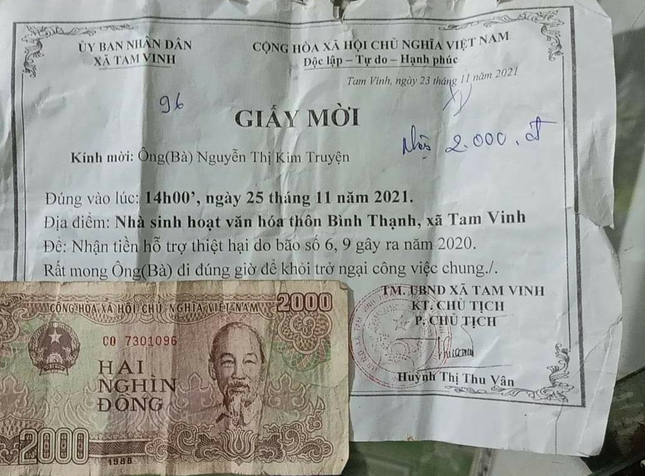 ỦY BAN NHÂN DÂN
XÃ TAM VINH
CỘNG HÒA XÃ HỘI CHỦ NGHĨA VIỆT NAM
Độc lập – Tự do – Hạnh phúc
Tam Vinh, ngày 23 tháng 11 năm 2021
96
GIẤY MỜI
2.000.đ
Kính mời: Ông(Bà) Nguyễn Thị Kim Truyện
Đúng vào lúc: 14h00', ngày 25 tháng 11 năm 2021.
Địa điểm: Nhà sinh hoạt văn hóa thôn Bình Thạnh, xã Tam Vinh
Để: Nhận tiền hỗ trợ thiệt hại do bão số 6, 9 gây ra năm 2020.
Rất mong Ông(Bà) đi đúng giờ để khỏi trở ngại công việc chung./.
TM. UBND XÃ TAM VINH
KT. CHỦ TỊCH
P. CHỦ TỊCH
Huỳnh Thị Thu Vân
CỘNG HÒA XÃ HỘI CHỦ NGHĨA VIỆT NAM
2000
CO 7301096
HAI
NGHÌN
ĐỒNG
2000
1988